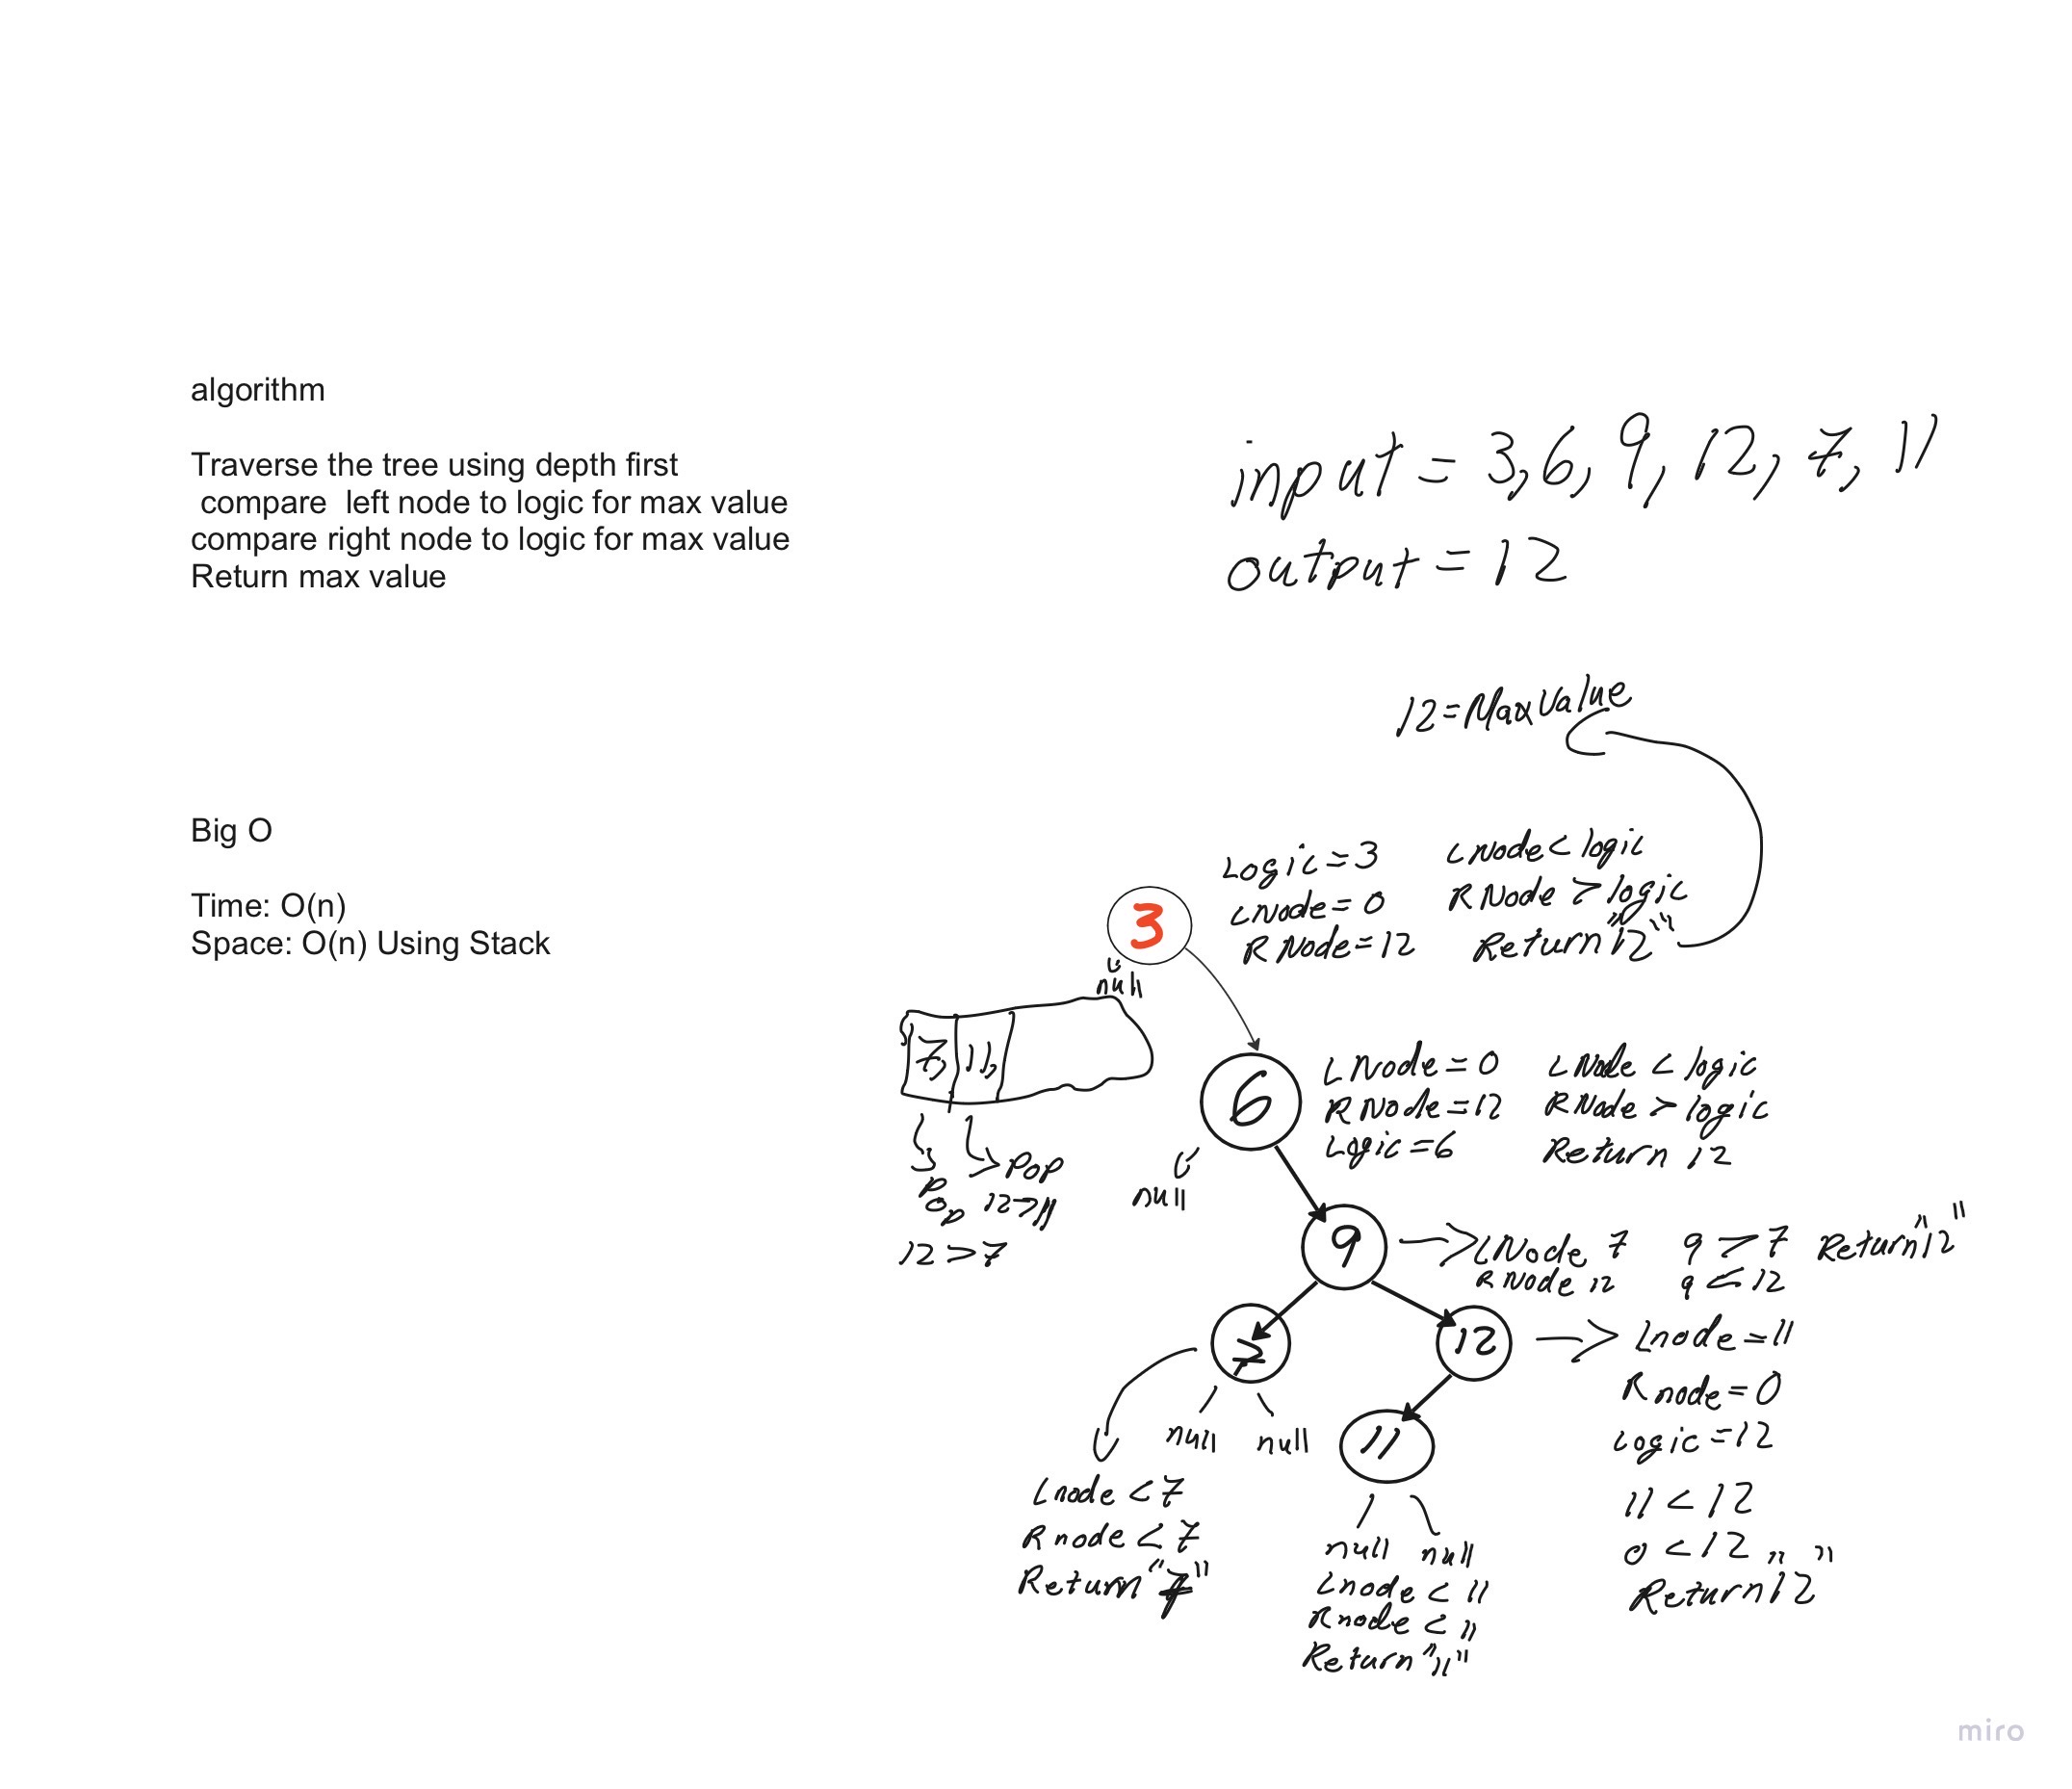 algorithm
Traverse the tree using depth first
compare left node to logic for max value
compare right node to logic for max value
Return max value
Big O
Time: O(n)
Space: O(n) Using Stack
input = 3, 6, 9, 12, 7, 11
output = 12
12 = MaxValue
Logic = 3
LNode = 0
RNode = 12
LNode < logic
RNode > logic
Return "12"
3
null
7, 11,
Pop
12 > 7
Pop
12 > 11
6
null
LNode = 0
RNode = 12
Logic = 6
LNode < logic
RNode > logic
Return 12
9
LNode 7
RNode 12
9 > 7
9 < 12
Return "12"
7
null null
Lnode < 7
Rnode < 7
Return "7"
12
Lnode = 11
Rnode = 0
Logic = 12
11 < 12
0 < 12
Return "12"
11
null null
Lnode < 11
Rnode < 11
Return "11"
miro